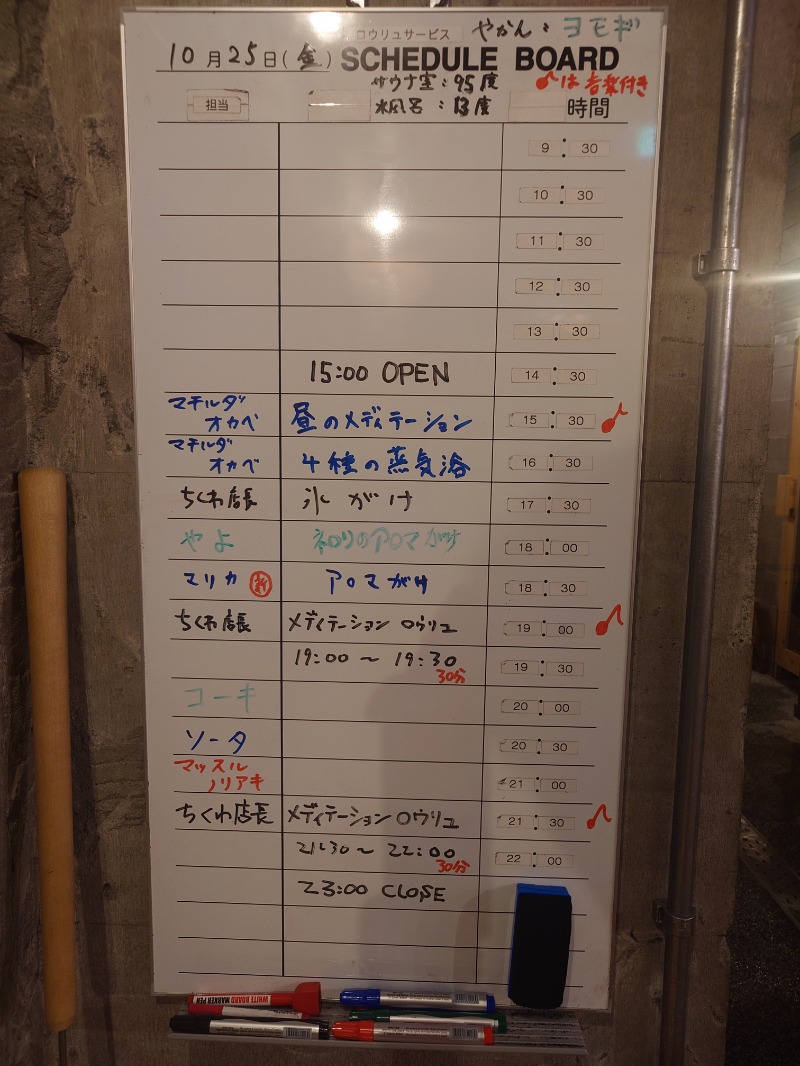 ロウリュサービス やかん:ヨモギ
10月25日(金) SCHEDULE BOARD
サウナ室:95度 ♪は音楽付き
担当 水風呂:13度 時間
9:30
10:30
11:30
12:30
13:30
15:00 OPEN 14:30
マチルダ オカベ 昼のメディテーション 15:30 ♪
マチルダ オカベ 4種の蒸気浴 16:30
ちくわ店長 氷がけ 17:30
やよ ネロリのアロマがけ 18:00
マリカ 新 アロマがけ 18:30
ちくわ店長 メディテーションロウリュ 19:00 ♪
19:00〜19:30 30分 19:30
コーキ 20:00
ソータ 20:30
マッスル ノリアキ 21:00
ちくわ店長 メディテーションロウリュ 21:30 ♪
21:30〜22:00 30分 22:00
23:00 CLOSE
WHITE BOARD MARKER PEN